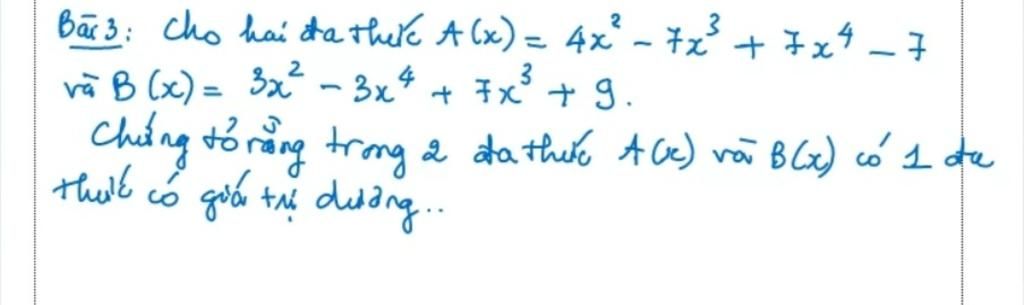 Bài 3: Cho hai đa thức A(x) = 4x² - 7x³ + 7x⁴ - 7
và B(x) = 3x² - 3x⁴ + 7x³ + 9.
Chứng tỏ rằng trong 2 đa thức A(x) và B(x) có 1 đa
thức có giá trị dương..